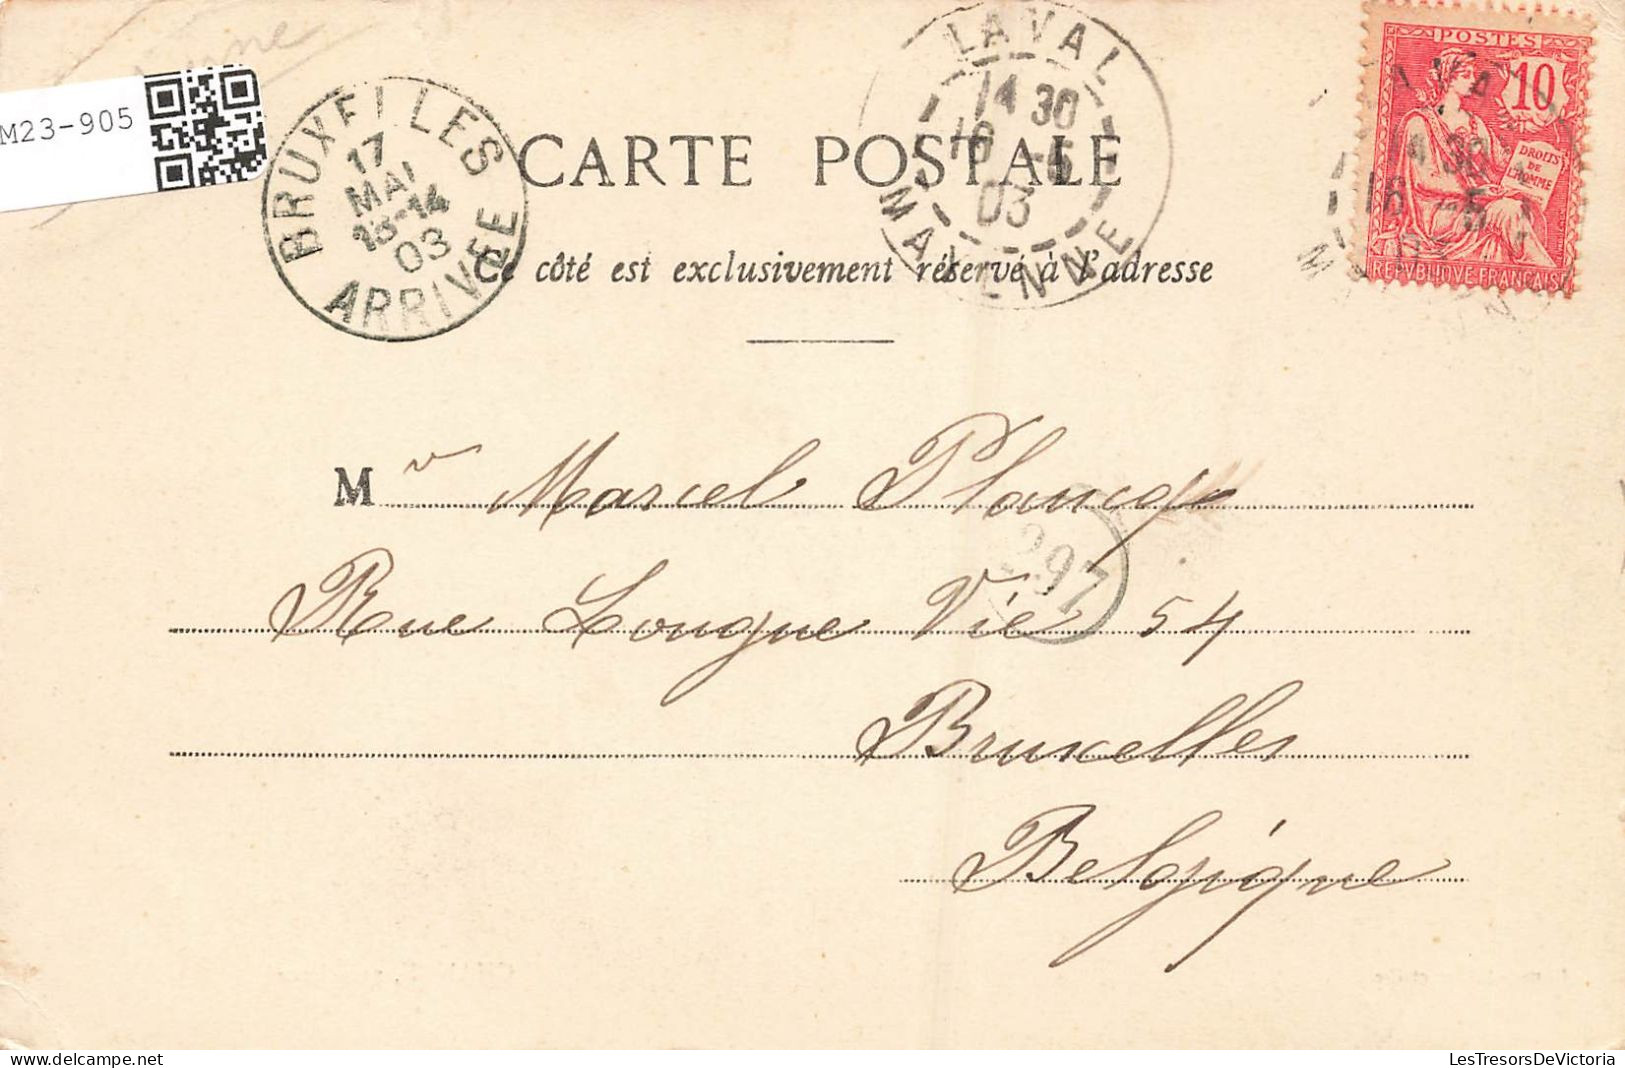 M23-905
BRUXELLES
17
MAI
13-14
03
ARRIVÉE
LAVAL
14 30
16 -5
03
MAYENNE
POSTES
10
DROITS
DE
L'HOMME
REPVBLIQVE FRANÇAISE
CARTE POSTALE
Ce côté est exclusivement réservé à l'adresse
Mr Marcel Plancq
297
Rue Longue Vie 54
Bruxelles
Belgique
LesTresorsDeVictoria